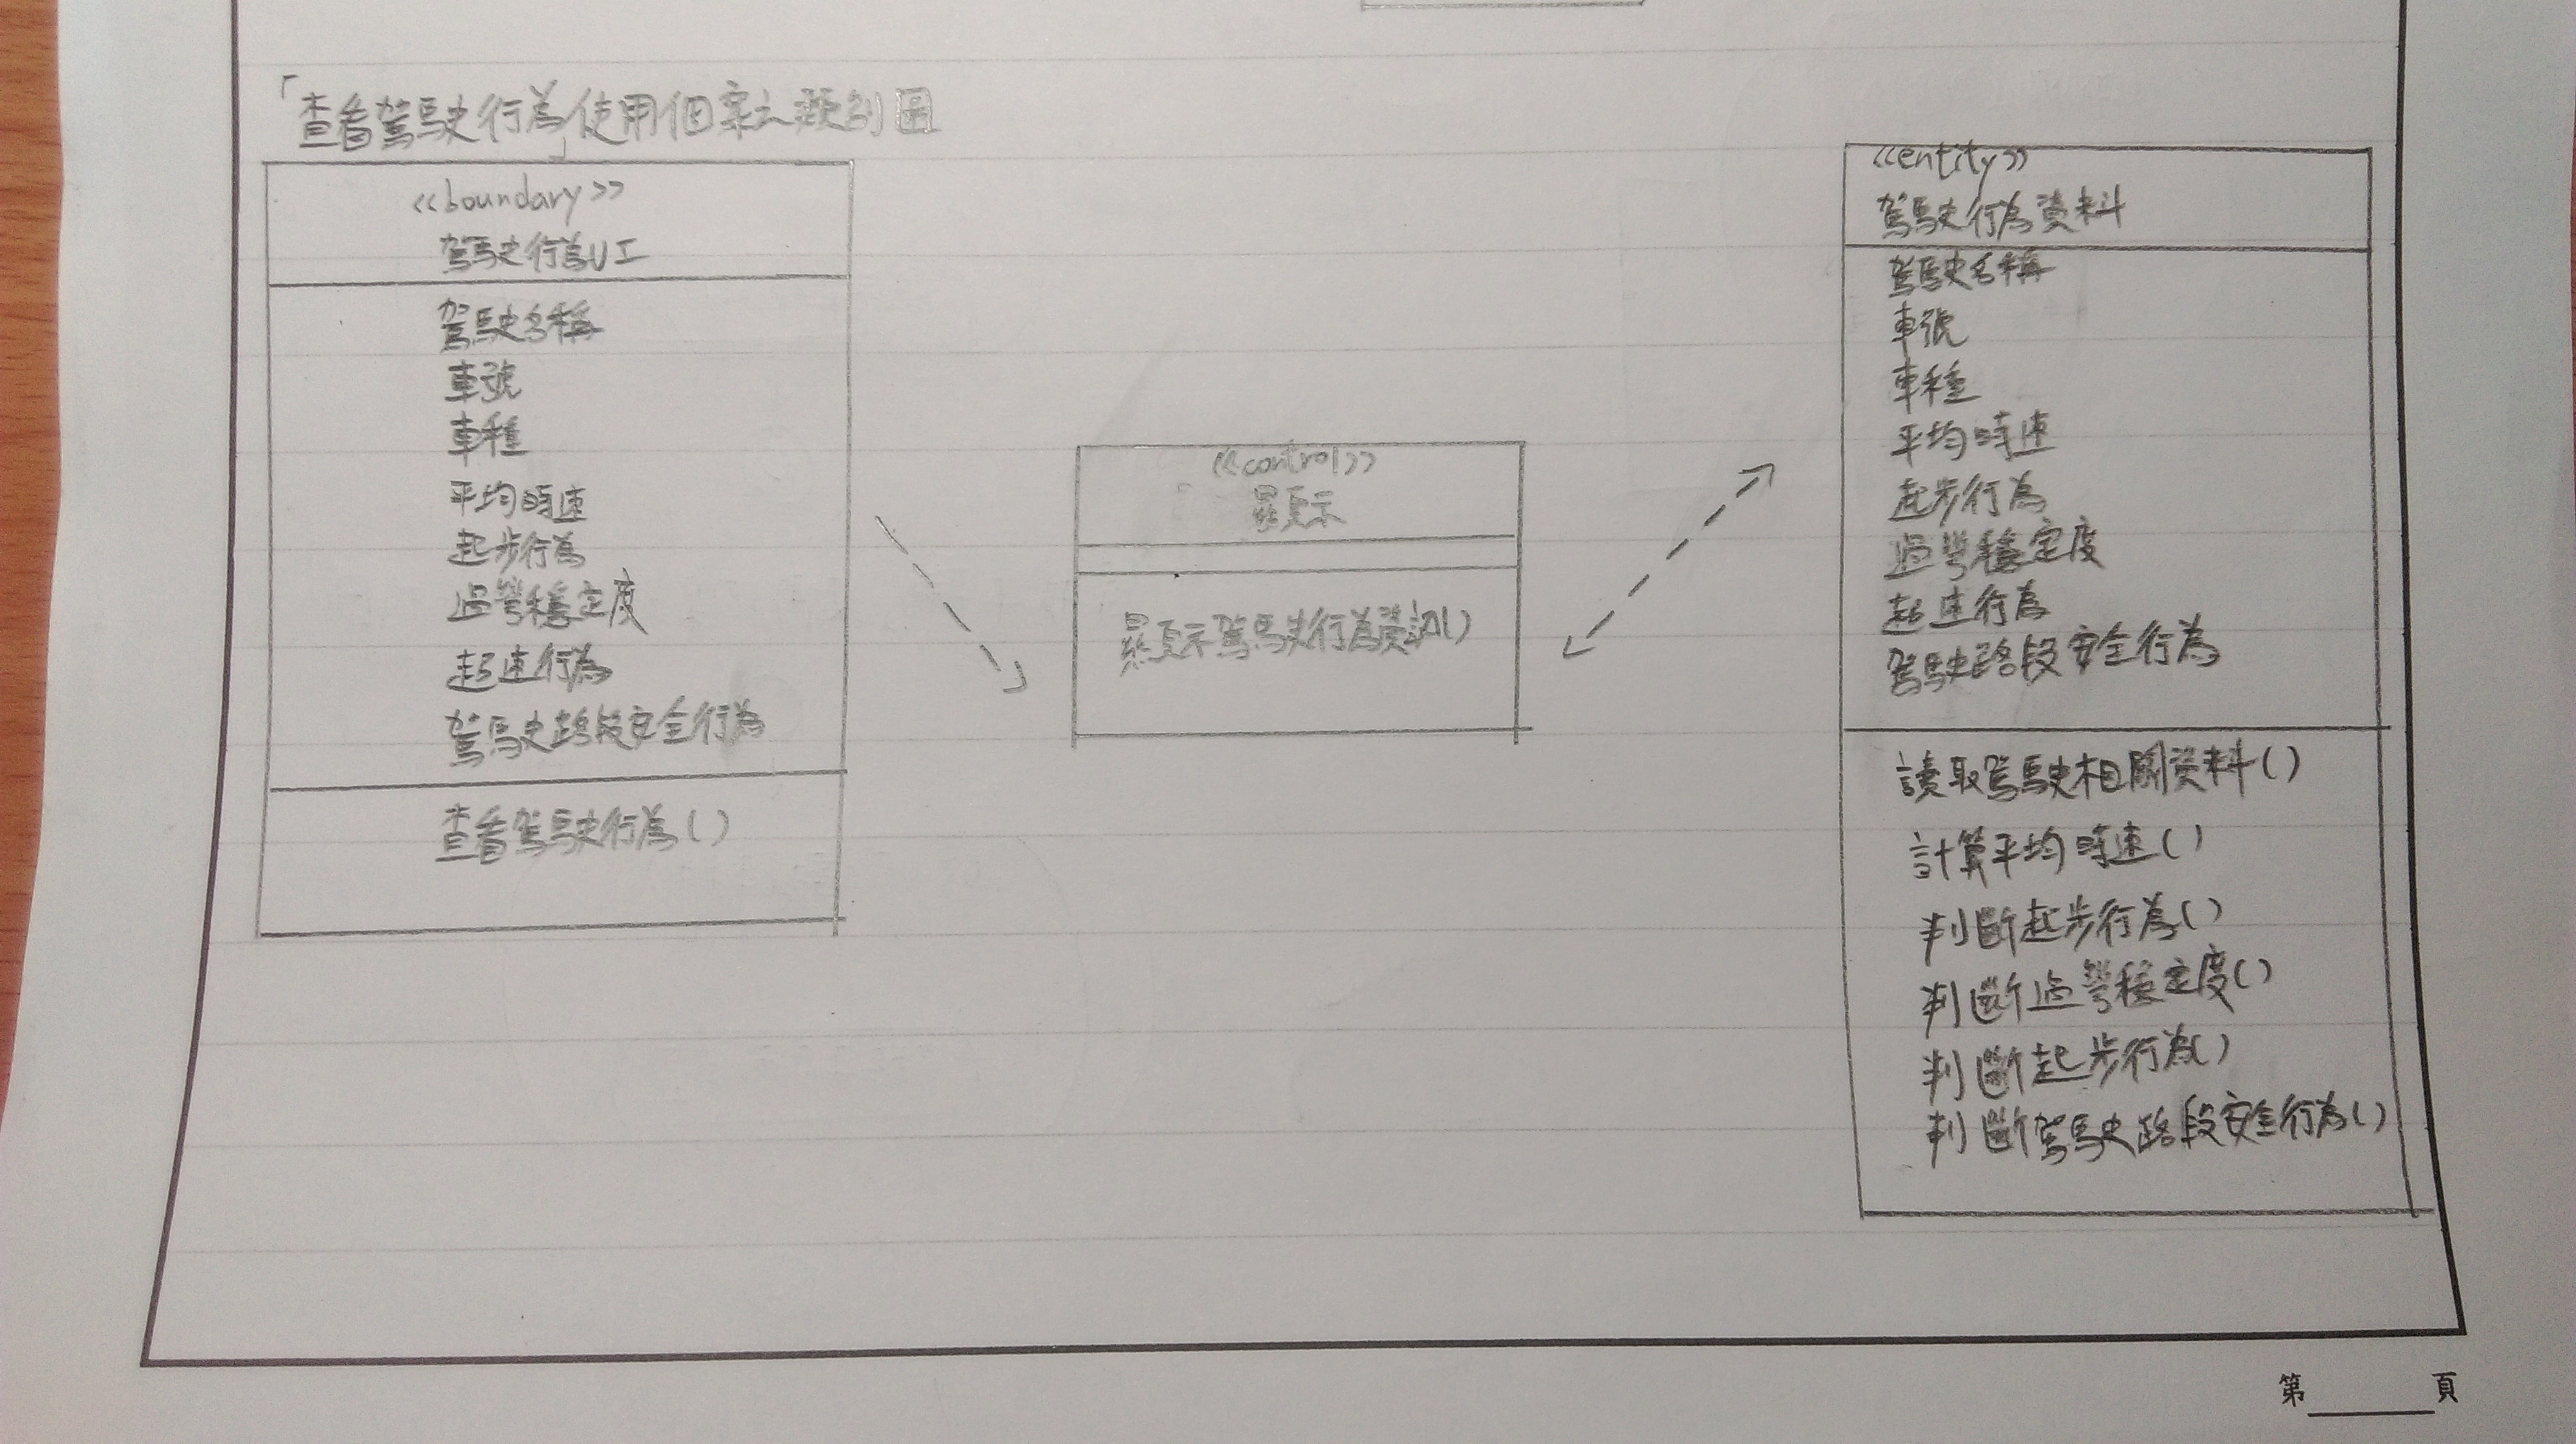 「查看駕駛行為」使用個案之類別圖
<<boundary>>
駕駛行為UI
駕駛名稱
車號
車種
平均時速
起步行為
過彎穩定度
超速行為
駕駛路段安全行為
查看駕駛行為()
<<control>>
顯示
顯示駕駛行為資訊()
<<entity>>
駕駛行為資料
駕駛名稱
車號
車種
平均時速
起步行為
過彎穩定度
超速行為
駕駛路段安全行為
讀取駕駛相關資料()
計算平均時速()
判斷起步行為()
判斷過彎穩定度()
判斷起步行為()
判斷駕駛路段安全行為()
第 頁